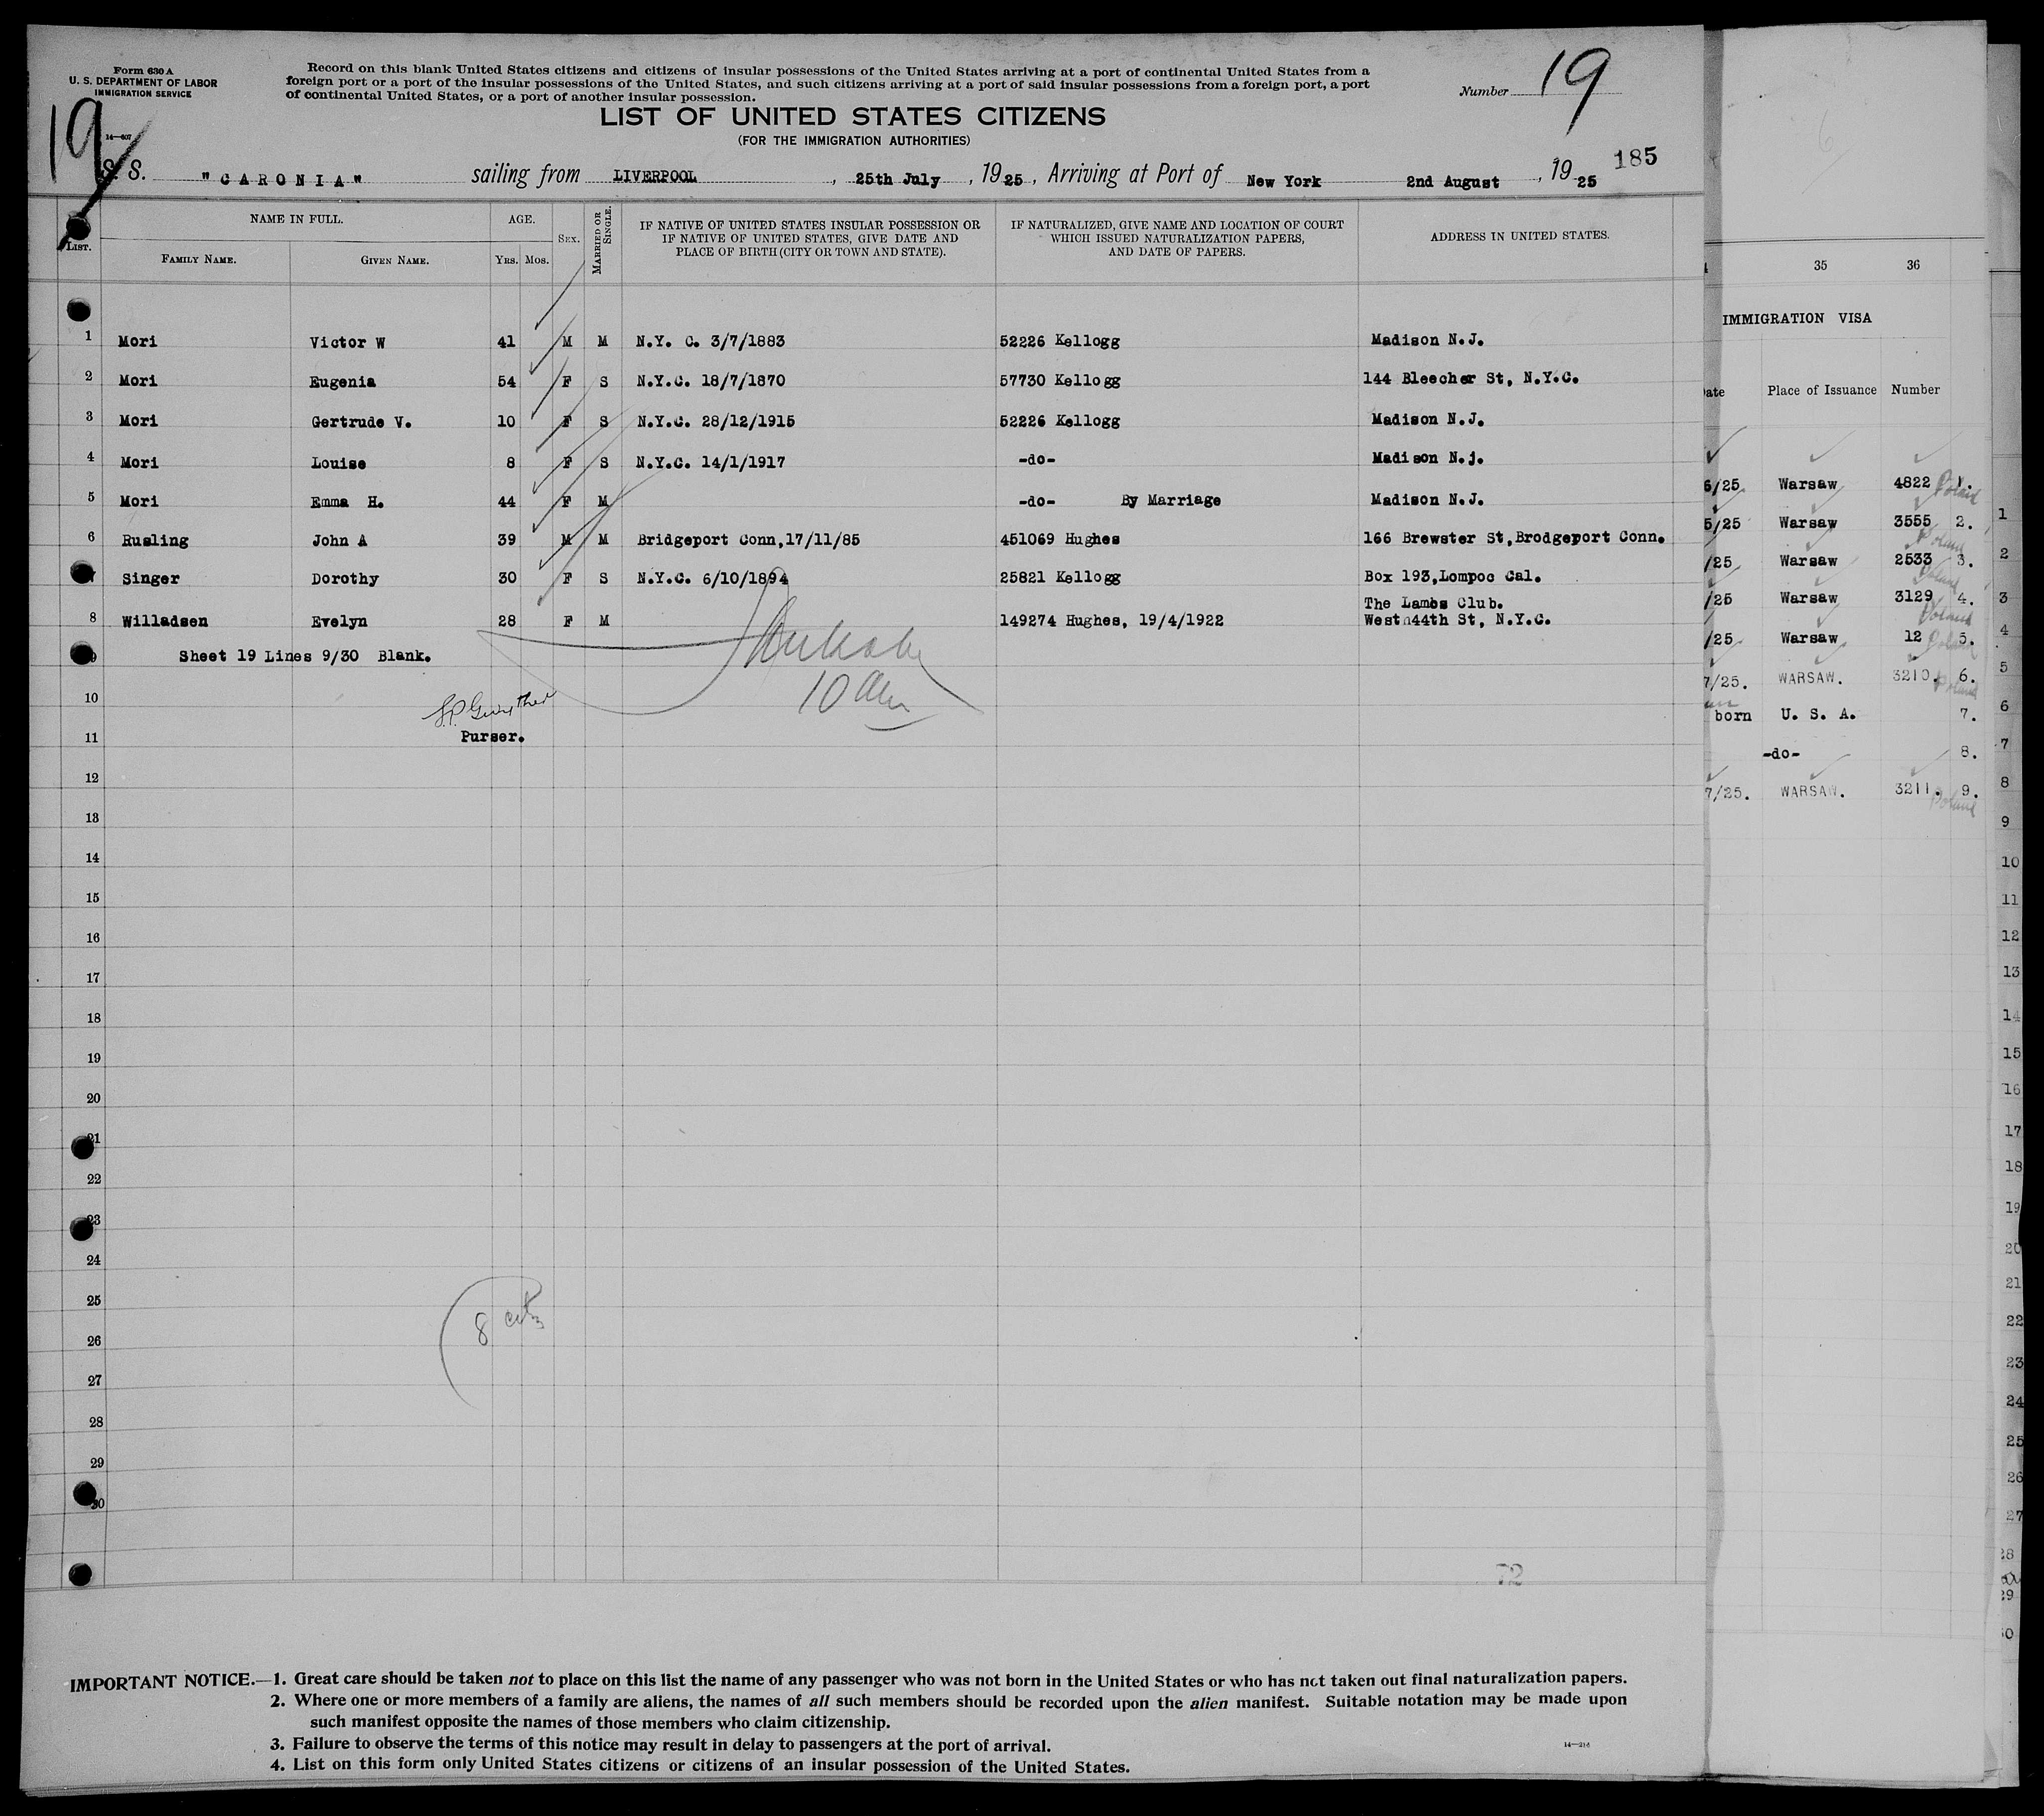 Form 630 A
U. S. DEPARTMENT OF LABOR
IMMIGRATION SERVICE
14—607
Record on this blank United States citizens and citizens of insular possessions of the United States arriving at a port of continental United States from a
foreign port or a port of the insular possessions of the United States, and such citizens arriving at a port of said insular possessions from a foreign port, a port
of continental United States, or a port of another insular possession.
Number 19
19
LIST OF UNITED STATES CITIZENS
(FOR THE IMMIGRATION AUTHORITIES)
S. S. "CARONIA" sailing from LIVERPOOL, 25th July, 1925, Arriving at Port of New York 2nd August, 1925
185
LIST. NAME IN FULL. AGE. SEX. MARRIED OR SINGLE. IF NATIVE OF UNITED STATES INSULAR POSSESSION OR IF NATIVE OF UNITED STATES, GIVE DATE AND PLACE OF BIRTH (CITY OR TOWN AND STATE). IF NATURALIZED, GIVE NAME AND LOCATION OF COURT WHICH ISSUED NATURALIZATION PAPERS, AND DATE OF PAPERS. ADDRESS IN UNITED STATES.
FAMILY NAME. GIVEN NAME. YRS. MOS.
1 Mori Victor W 41 M M N.Y. C. 3/7/1883 52226 Kellogg Madison N.J.
2 Mori Eugenia 54 F S N.Y.C. 18/7/1870 57730 Kellogg 144 Bleecher St, N.Y.C.
3 Mori Gertrude V. 10 F S N.Y.C. 28/12/1915 52226 Kellogg Madison N.J.
4 Mori Louise 8 F S N.Y.C. 14/1/1917 -do- Madison N.j.
5 Mori Emma H. 44 F M -do- By Marriage Madison N.J.
6 Rusling John A 39 M M Bridgeport Conn,17/11/85 451069 Hughes 166 Brewster St,Brodgeport Conn.
7 Singer Dorothy 30 F S N.Y.C. 6/10/1894 25821 Kellogg Box 193,Lompoc Cal.
The Lambs Club.
8 Willadsen Evelyn 28 F M 149274 Hughes, 19/4/1922 West 44th St, N.Y.C.
9 Sheet 19 Lines 9/30 Blank.
10
11 Purser.
12
13
14
15
16
17
18
19
20
21
22
23
24
25
26
27
28
29
30
8
72
IMPORTANT NOTICE.—1. Great care should be taken not to place on this list the name of any passenger who was not born in the United States or who has not taken out final naturalization papers.
2. Where one or more members of a family are aliens, the names of all such members should be recorded upon the alien manifest. Suitable notation may be made upon
such manifest opposite the names of those members who claim citizenship.
3. Failure to observe the terms of this notice may result in delay to passengers at the port of arrival.
4. List on this form only United States citizens or citizens of an insular possession of the United States.
35 36
IMMIGRATION VISA
Place of Issuance Number
6/25 Warsaw 4822 1. Poland
5/25 Warsaw 3555 2. Poland
/25 Warsaw 2533 3. Poland
/25 Warsaw 3129 4. Poland
/25 Warsaw 12 5. Poland
7/25. WARSAW. 3210. 6. Poland
born U. S. A. 7.
-do- 8.
7/25. WARSAW. 3211. 9. Poland
1
2
3
4
5
6
7
8
9
10
11
12
13
14
15
16
17
18
19
20
21
22
23
24
25
26
27